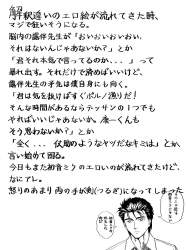 解釈違いのエロ絵が流れてきた時、
マジで狂いそうになる。
脳内の露伴先生が「おいおいおいおい、
それはないんじゃあないか？」とか
「君それ本気で言ってるのか... 」って
暴れ出す。それだけで済めばいいけど、
露伴先生の矛先は僕自身にも向く。
「君は気を抜けばすぐポルノ漁りだ！
そんな時間があるならデッサンの1つでも
やればいいじゃあないか。康一くんも
そう思わないか？」とか
「全く... 仗助のようなヤツだなキミは」とか
言い始めて困る。
今日もまた初音ミクのエロいのが流れてきたけど、
なにアレ。
怒りのあまり両の手が剣(つるぎ)になってしまった